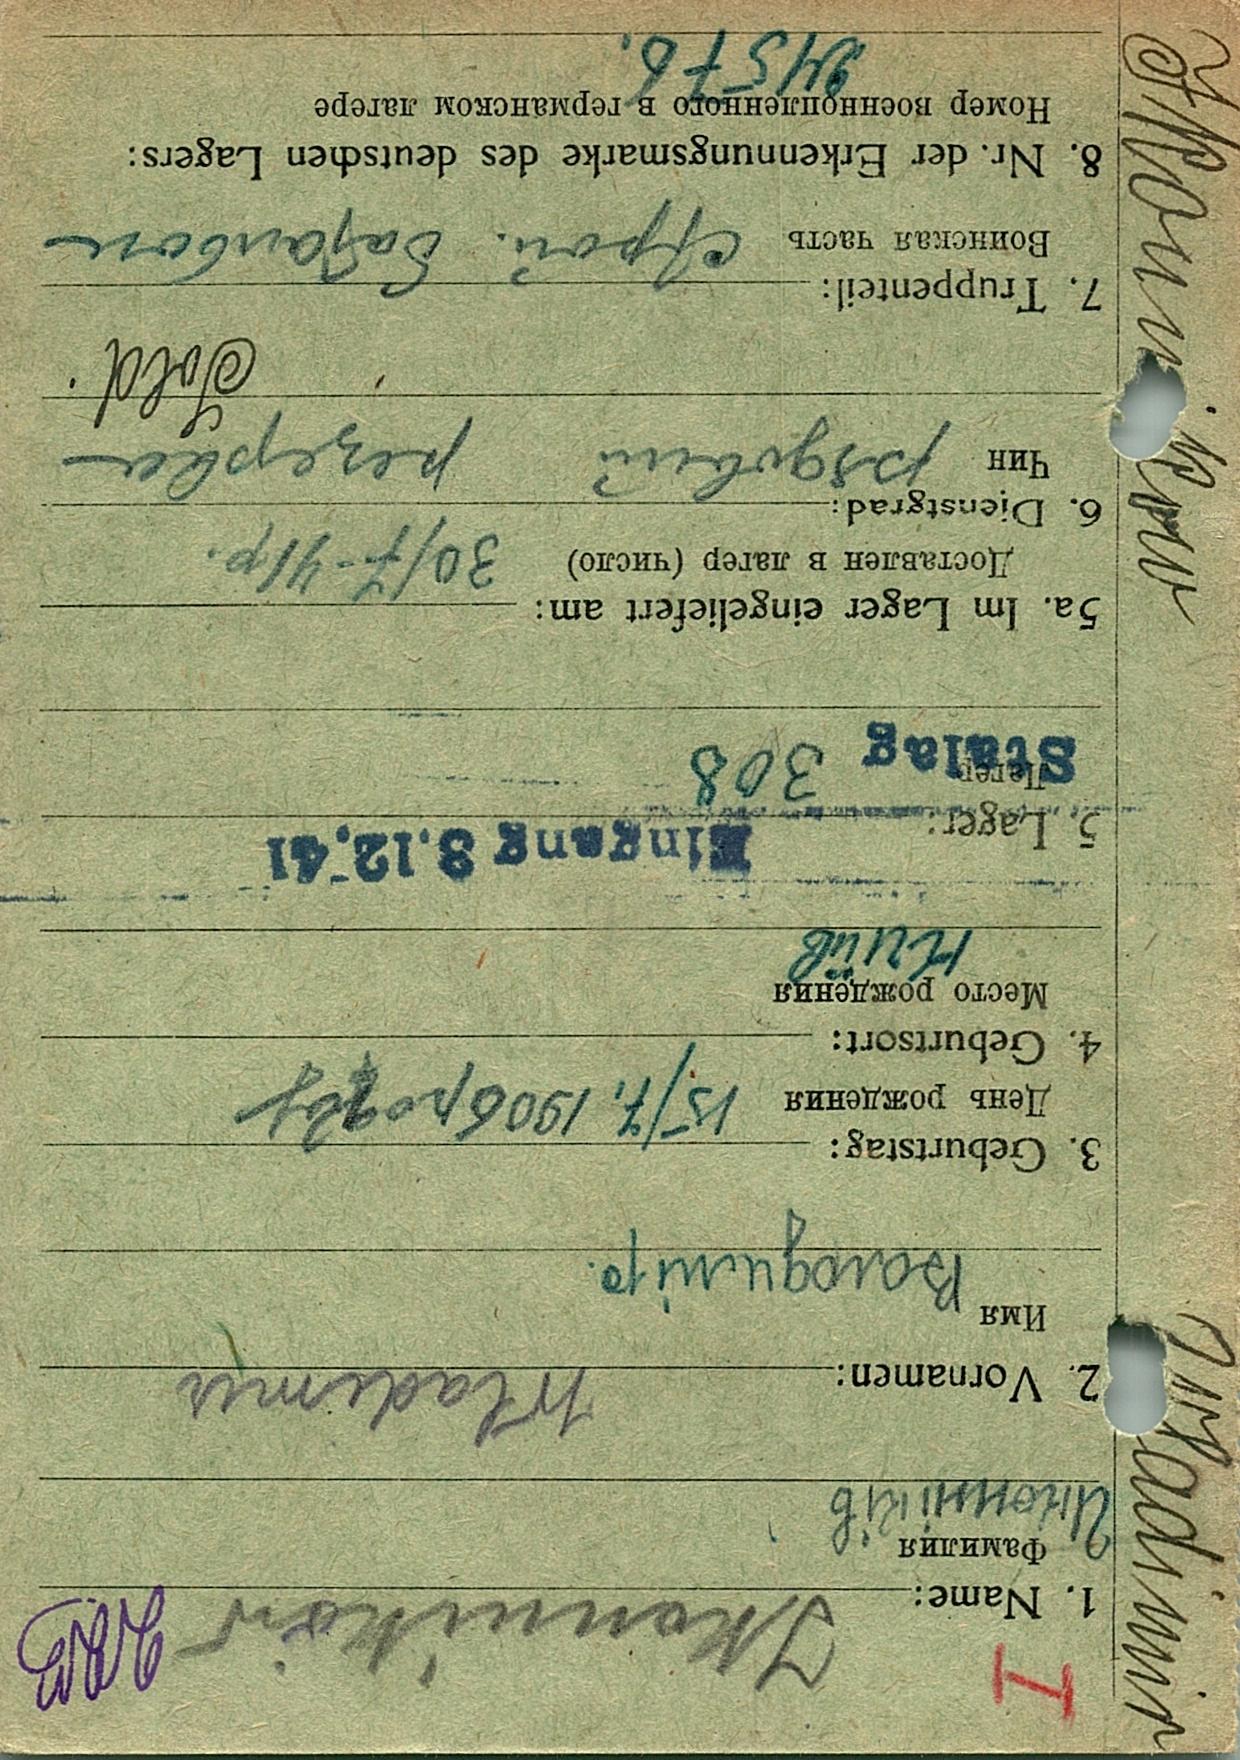 I
1. Name: Ikonnikow
Фамилия Иконніків
2. Vornamen: Wladimir
Имя Володимір.
3. Geburtstag:
День рождения 15/7. 1906 року
4. Geburtsort:
Место рождения Київ
Eingang 3.12.41
5. Lager:
Лагер Stalag 308
5a. Im Lager eingeliefert am:
Доставлен в лагер (число) 30/7-41р.
6. Dienstgrad:
Чин рядовий резерва
Sold.
7. Truppenteil:
Воинская часть строй. батальон
8. Nr. der Erkennungsmarke des deutschen Lagers:
Номер военнопленного в германском лагере
24576.
Ikonnikow Wladimir